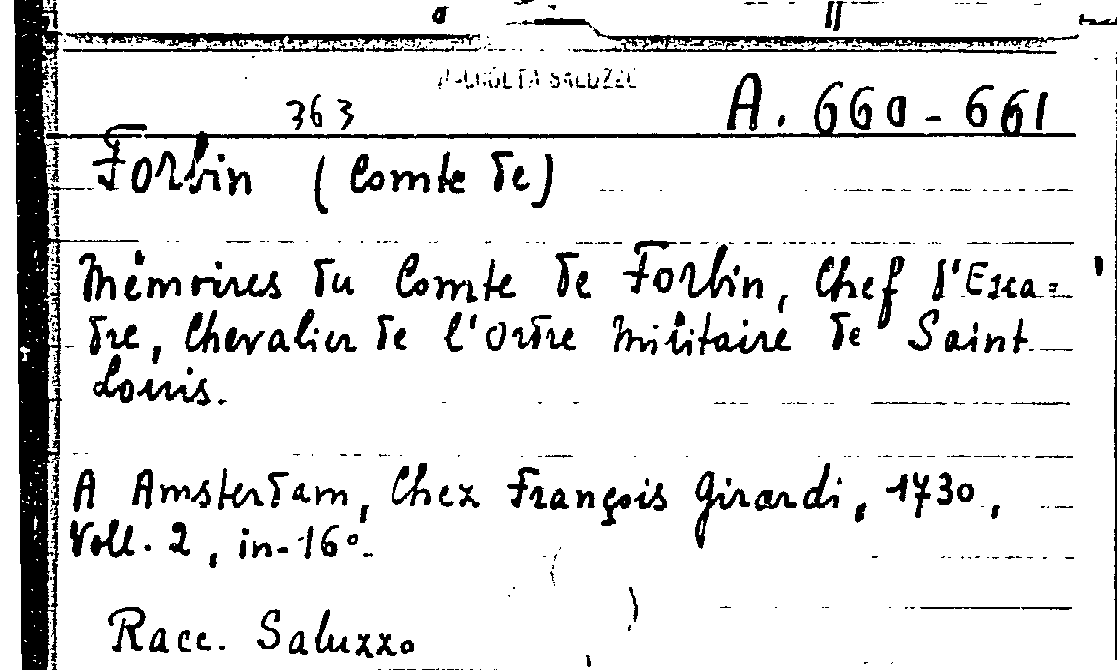 RACCOLTA SALUZZO
363
A. 660-661
Forbin (Comte de)
Mémoires du Comte de Forbin, Chef d'Esca=
dre, Chevalier de l'Ordre Militaire de Saint
Louis.
A Amsterdam, Chez François Girardi, 1730,
Voll. 2, in-16°.
Racc. Saluzzo